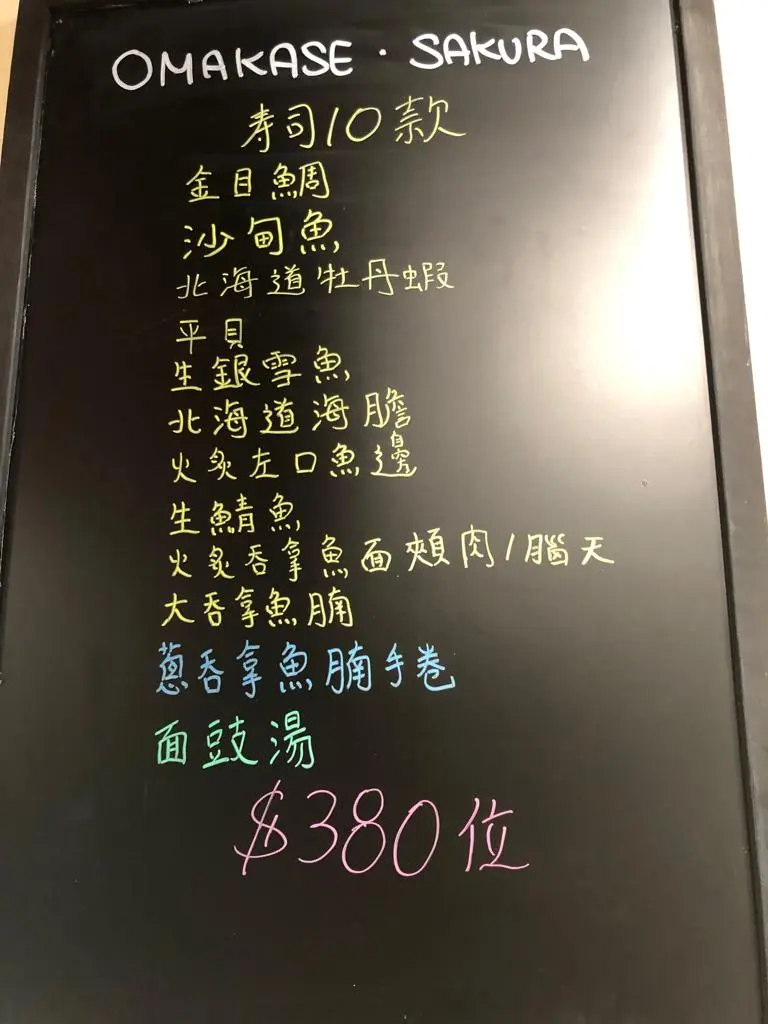 OMAKASE · SAKURA
寿司10款
金目鯛
沙甸魚
北海道牡丹蝦
平貝
生銀雪魚
北海道海膽
火炙左口魚邊
生鯖魚
火炙吞拿魚面頰肉/腦天
大吞拿魚腩
蔥吞拿魚腩手卷
面豉湯
$380位